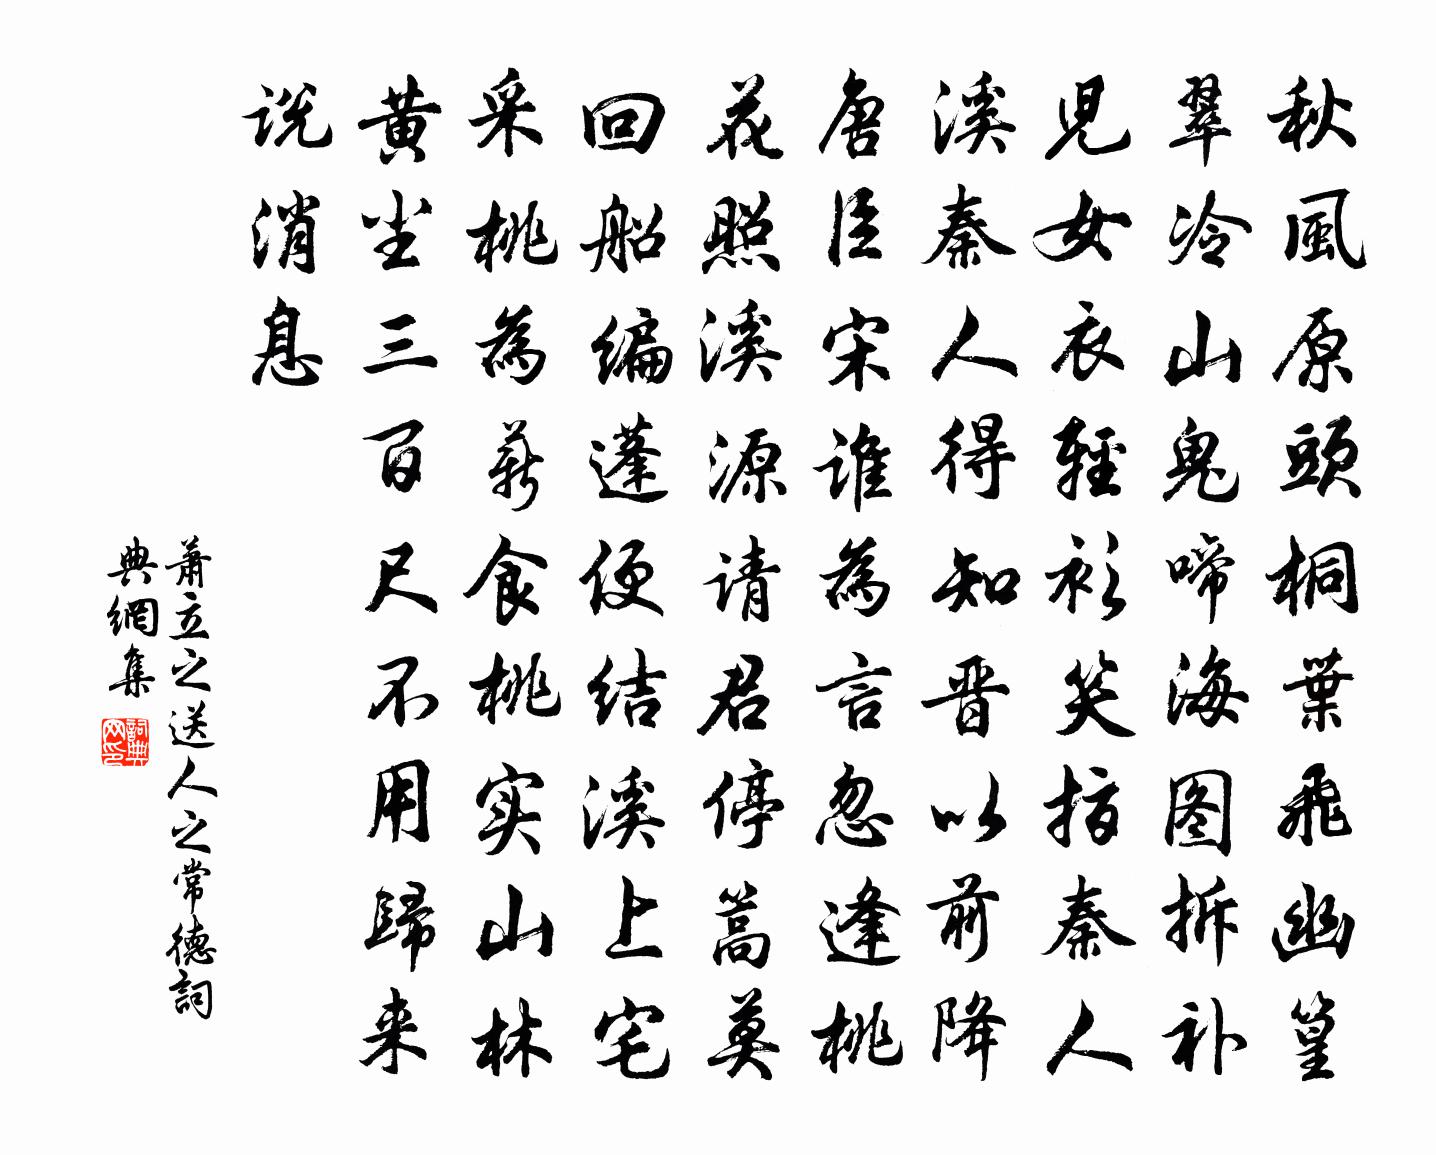 秋風原頭桐葉飛幽篁
翠冷山鬼啼海图拆补
児女衣輕衫笑指秦人
溪秦人得知晋以前降
唐臣宋谁為言忽逢桃
花照溪源请君停篙莫
回船编蓬便结溪上宅
采桃為薪食桃实山林
黄尘三百尺不用歸来
说消息
蕭立之送人之常德詞
典網集
詞典网印